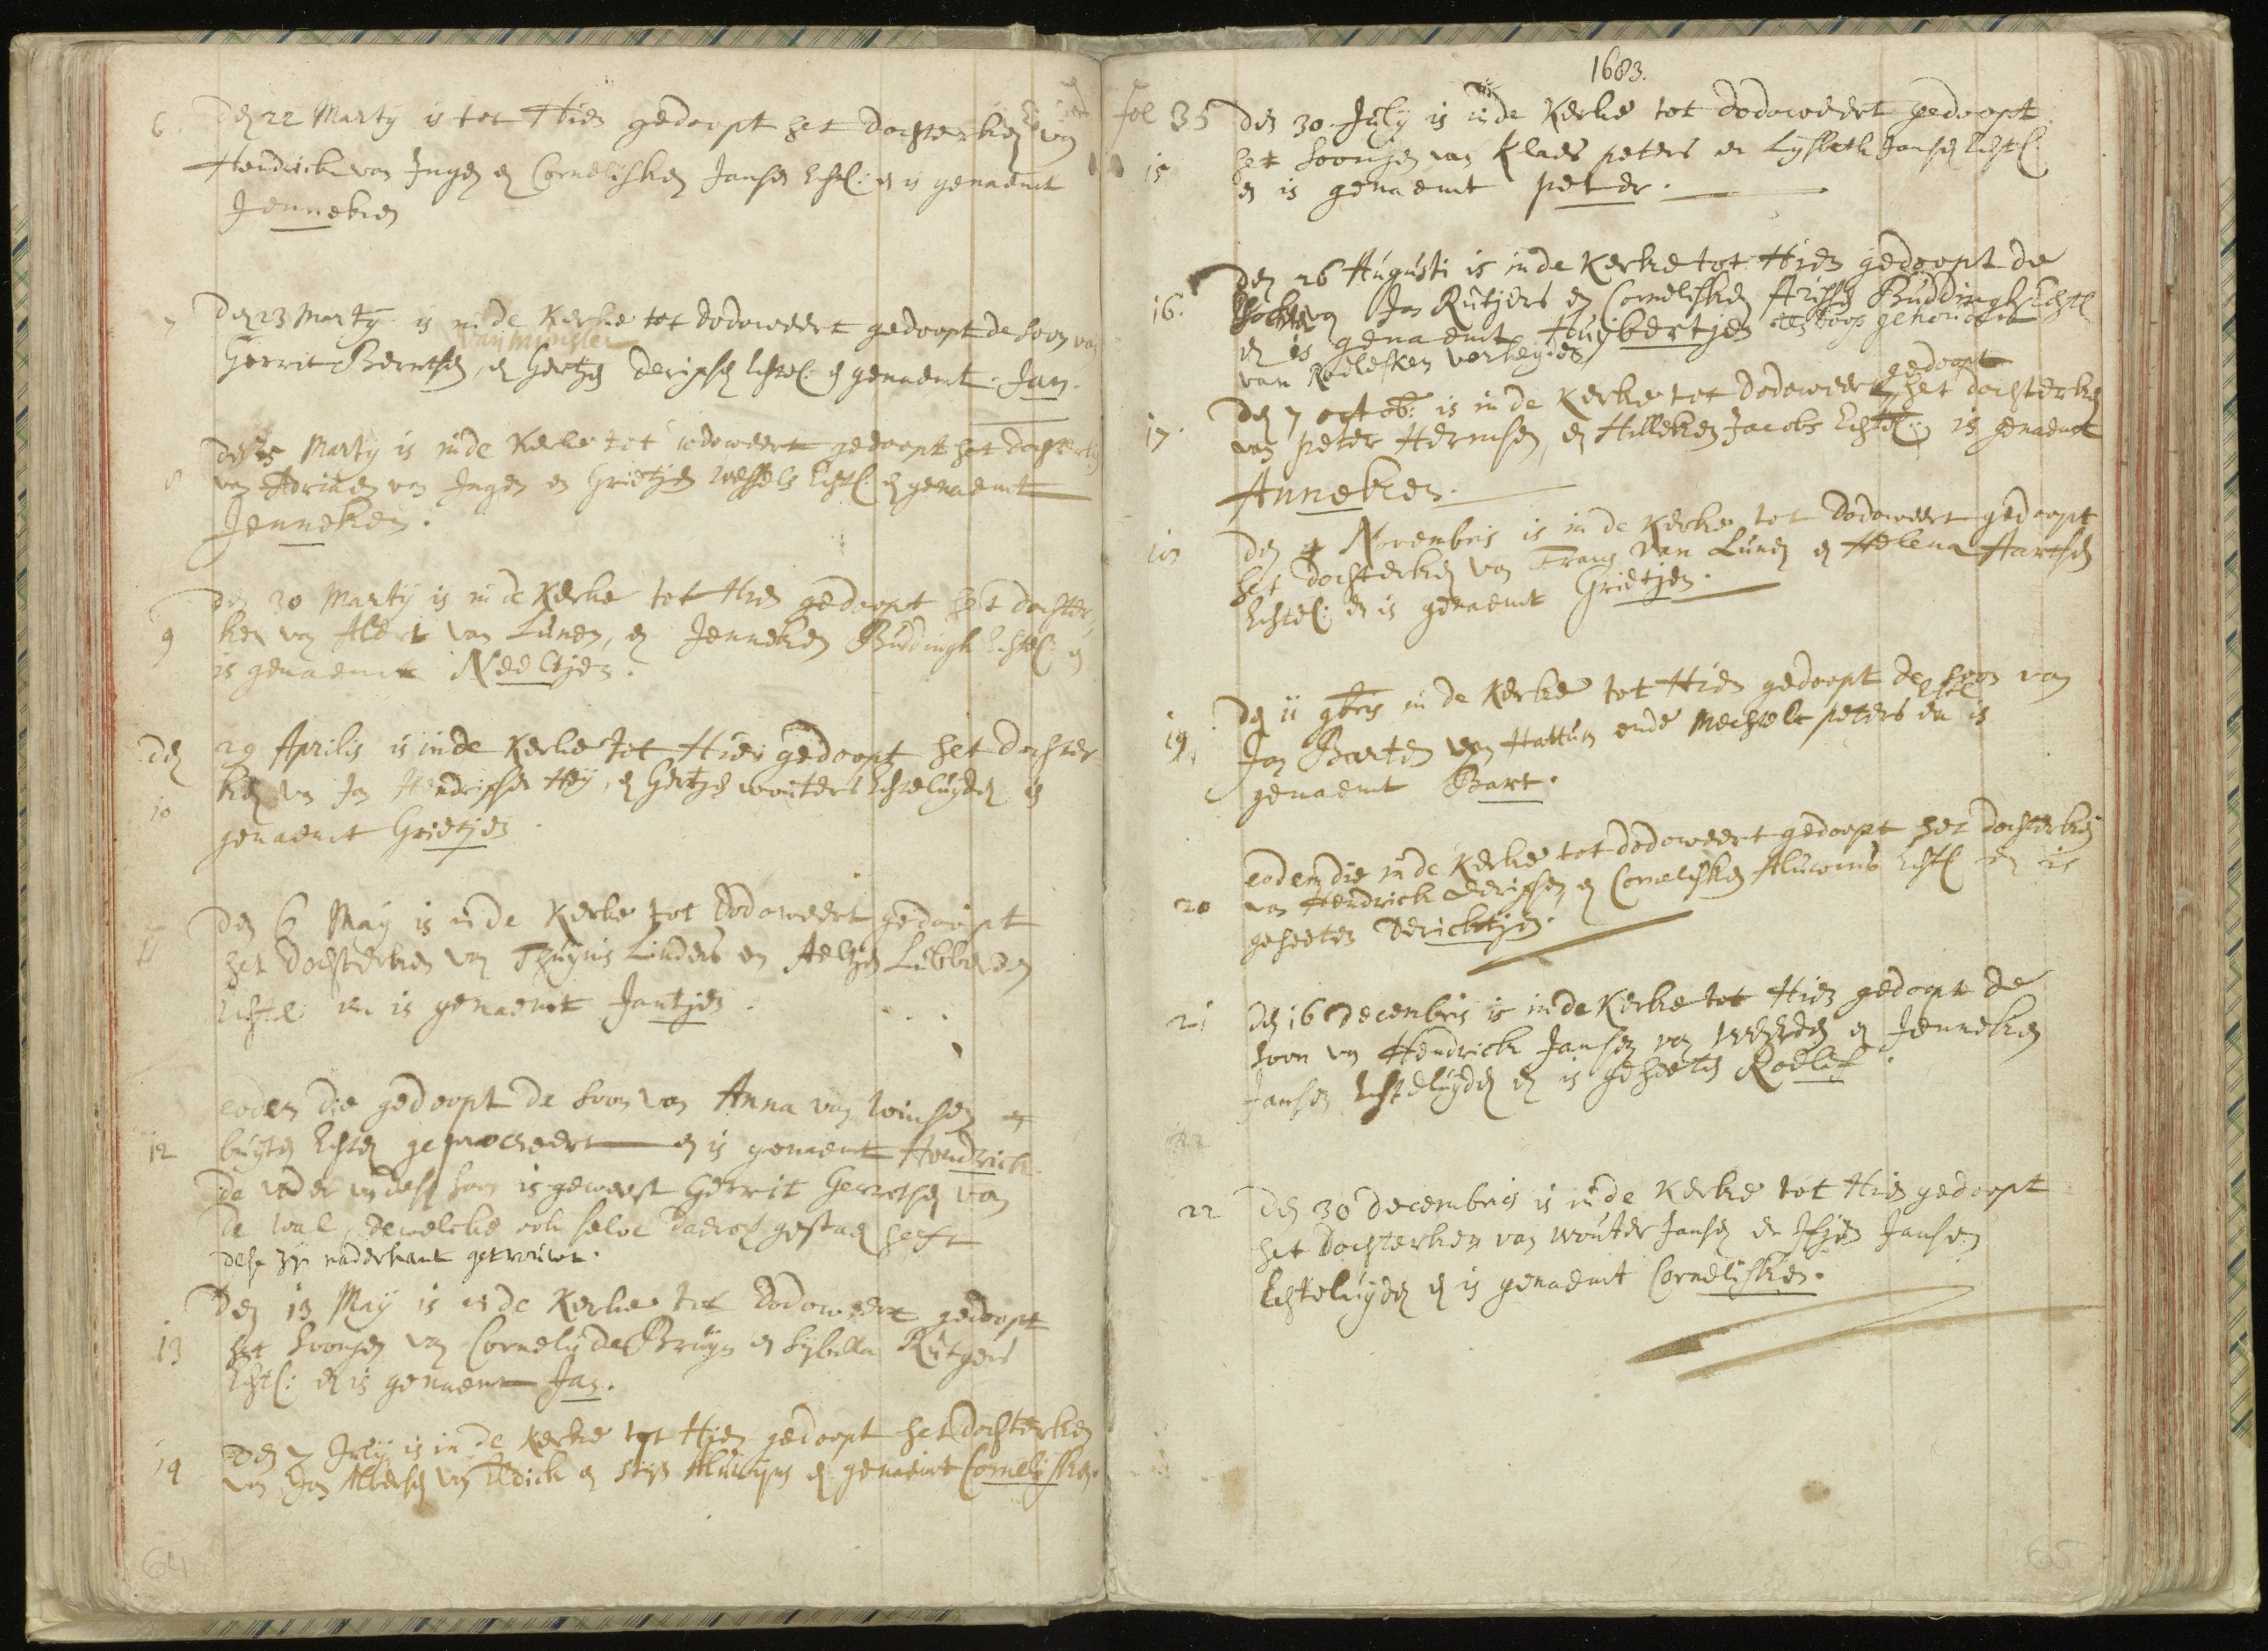 6 Den 22 Marty is tot Hien gedoopt het dochterken van
Hendrick van Ingen en Cornelisken Jansen Echtel: en is genaemt
Jenneken
7 Den 23 Marty is in de Kerke tot Dodoweert gedoopt de soon van
van Munster
Gerrit Berntsen, en Geertjen Dericksen Echtel: en genaemt Jan.
8 Den 25 Marty is in de Kerke tot dodoweert gedoopt het dochterken
van Adriaen van Ingen en Grietjen Wessels Echtel: en genaemt
Jenneken.
Den 30 Marty is in de Kerke tot Hien gedoopt het dochter
9 ken van Albert van Lunen, en Jenneken Buddingh Echtel: en
is genaemt Neeltjen.
Den 29 Aprilis is in de Kerke tot Hien gedoopt het dochter
10 ken van Jan Hendricksen Heij, en Geertjen wouters Echteluyden is
genaemt Grietjen.
11 Den 6 May is in de Kerke tot Dodoweert gedoopt
het dochterken van Thuynis Linders en Aeltjen Lubberden
Echtel: en is genaemt Jantjen.
eodem die gedoopt de soon van Anna van Winssen
12 buyten Echten geprocreeert en is genaemt Hendrick
de vader van dese soon is geweest Gerrit Gerritsen van
de Wal, dewelcke ook selve daerop gestaen heeft
dese zyn naderhant getrouwt.
Den 13 May is in de Kerke tot Dodoweert gedoopt
13 het soontjen van Cornelis de Bruyn en Sybilla Rutgers
Echtel: en is genaemt Jan.
Den 7 July is in de Kerke tot Hien gedoopt het dochterken
14 van Jan Albertsen van Eldick en Alewyns en genaemt Cornelisken.
64
1683.
fol 35 Den 30 July is in de Kerke tot Dodoweert gedoopt
15 het soontjen van Klaes peters en Lysbeth Jansen Echtel:
en is genaemt peter.
Den 26 Augusti is in de Kerke tot Hien gedoopt de
16. dochter van Jan Rutjers en Cornelisken Arissen Buddingh Echtel
en is genaemt Huijbertjen ten doop gehouden
van Roelefken verheyen
gedoopt
17. Den 7 octob: is in de Kerke tot Dodoweert het dochterken
van peter Hermsen, en Hilleken Jacobs Echtel: is genaemt
Anneken.
18 Den 4 Novembris is in de Kerke tot Dodoweert gedoopt
het dochterken van Frans van Lunen en Helena Hartsen
Echtel: en is genaemt Grietjen.
Den 11 9bris in de Kerke tot Hien gedoopt de soon van
Echtel
19. Jan Barten van Hattum ende Mechtelt peters en is
genaemt Bart.
eodem die in de Kerke tot dodoweert gedoopt het dochterken
20 van Hendrick Dericksen en Cornelisken Alewins Echtel en is
geheeten Dericktjen.
21 Den 16 Decembris is in de Kerke tot Hien gedoopt de
soon van Hendrick Jansen van Weerden en Jenneken
Jansen Echteluyden en is geheeten Roelif.
22
22 Den 30 Decembris is in de Kerke tot Hien gedoopt
het dochterken van Wouter Jansen en Jfjen Jansen
Echteluyden en is genaemt Cornelisken.
65